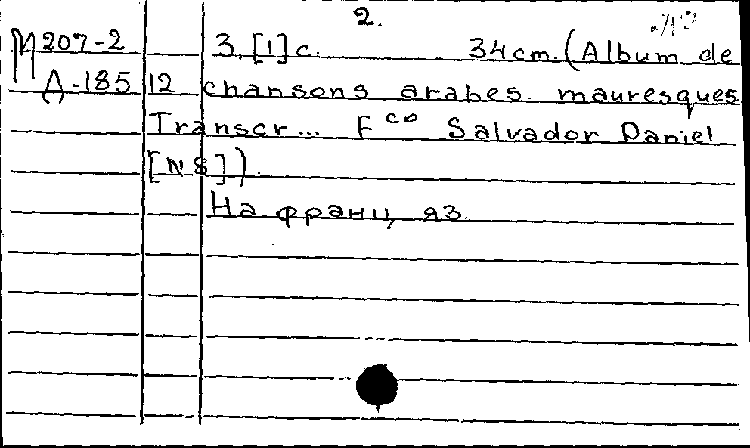 2.
М 207-2 3,[1] с. 34 cm. (Album de
А-185 12 chansons arabes mauresques
Transcr... Fco Salvador Daniel
[N 8])
На франц, яз